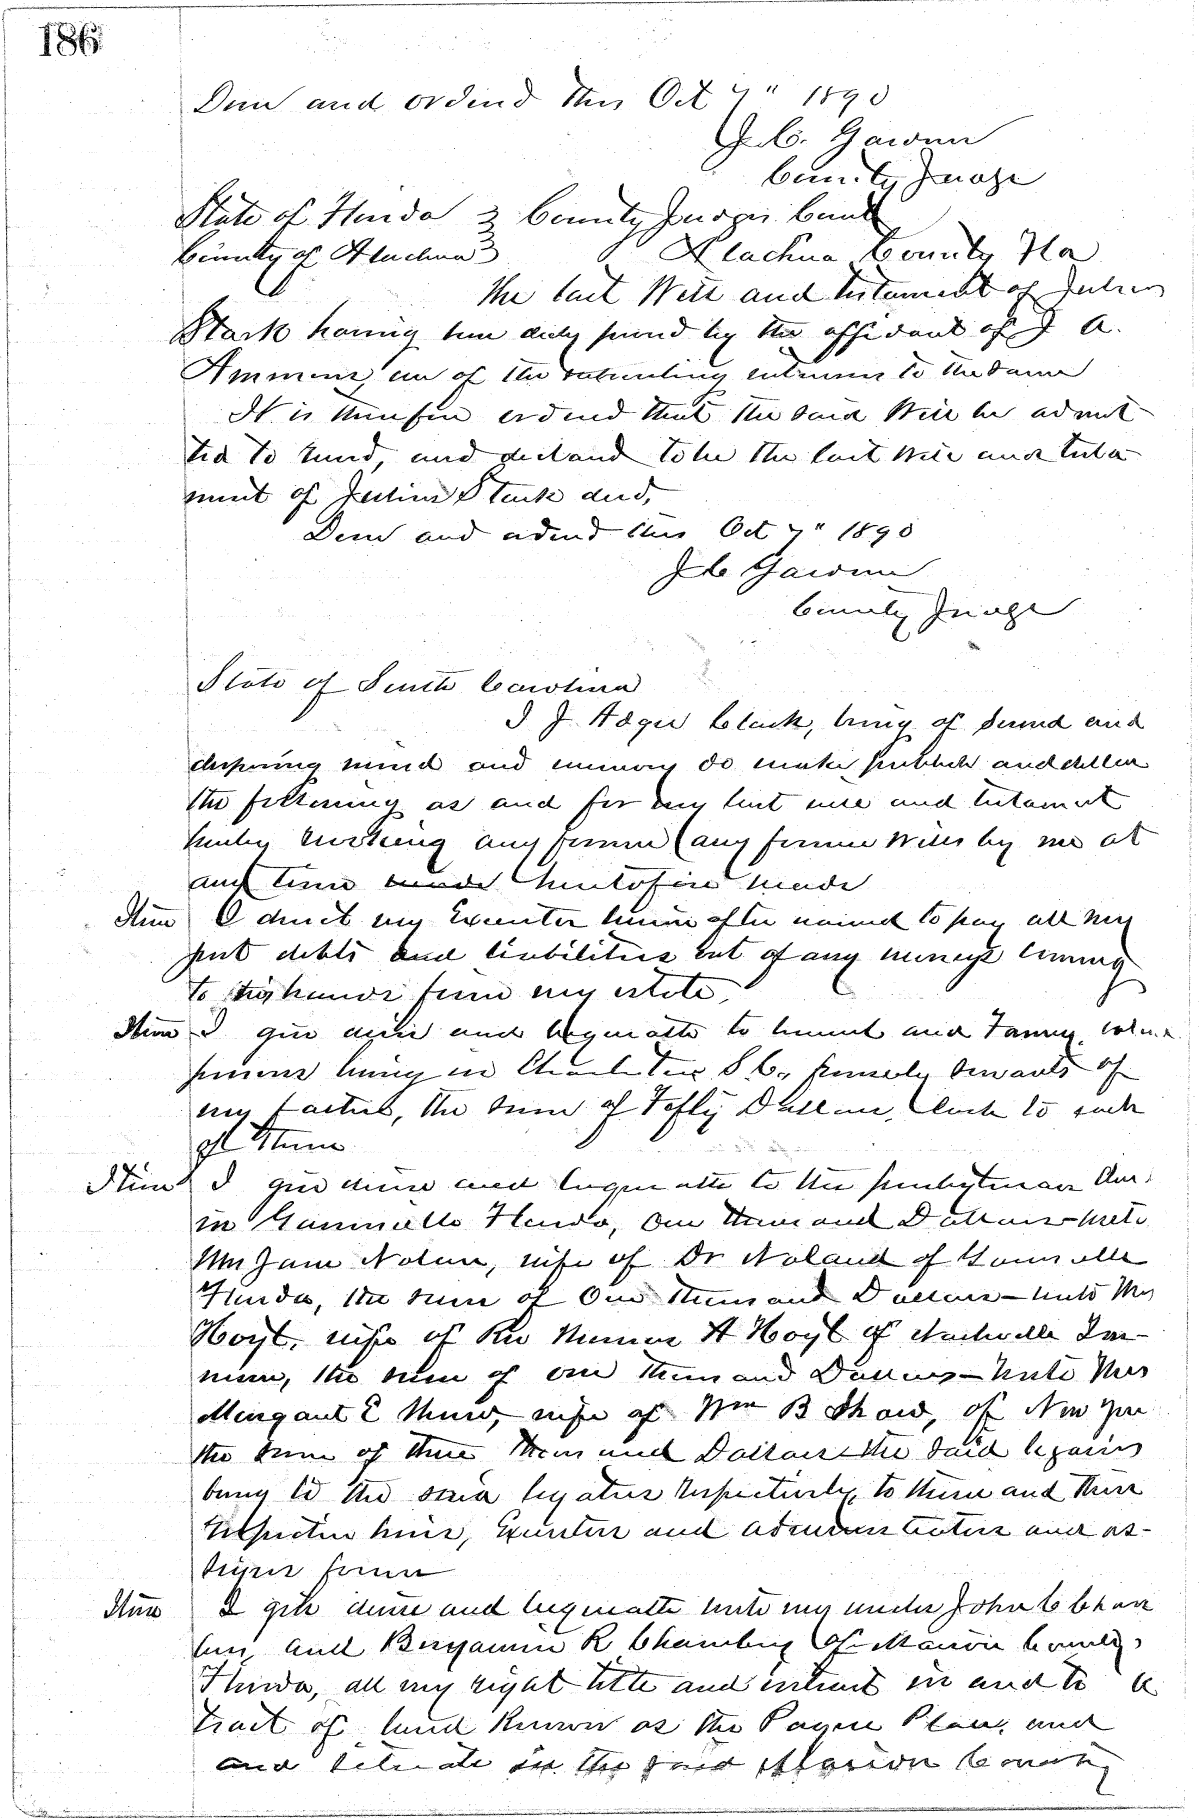 186
Done and ordered this Oct 7" 1890
J. C. Gardner
County Judge
State of Florida } County Judges Court
County of Alachua } Alachua County Fla
The last Will and testament of Julius
Stark having been duly proved by the affidavit of J A.
Ammons, one of the subscribing witnesses to the same
It is therefore ordered that the said Will be admit
ted to record, and declared to be the last Will and testa
ment of Julius Stark decd,
Done and ordered this Oct 7" 1890
J C Gardner
County Judge
State of South Carolina
I J. Adger Clark, being of sound and
disposing mind and memory do make publish and declare
the following as and for my last will and testament
hereby revoking any former (any former Wills by me at
any time made heretofore made
Item I direct my Executor herein after named to pay all my
just debts and liabilities out of any moneys coming
to his hands from my estate,
Item I give devise and bequeath to and Fanny,
persons living in Charleston S. C., formerly servants of
my father, the sum of Fifty Dollars, to each
of them
Item I give devise and bequeath to the Presbyterian
in Gainesville Florida, One Thousand Dollars – unto
Mrs Jane Nolan, wife of Dr Noland of Gainesville
Florida, the sum of One Thousand Dollars – unto Mrs
Hoyt, wife of Rev Thomas A Hoyt of Nashville Ten-
nessee, the sum of one thousand Dollars – Unto Mrs
Margaret E Shaw, wife of Wm B Shaw, of New York
the sum of three thousand Dollars the said legacies
being to the said legatees respectively, to them and their
respective heirs, Executors and administrators and as-
signs forever
Item I give devise and bequeath unto my uncles John C Cham
bers, and Benjamin R Chambers of Marion County,
Florida, all my right title and interest in and to
tract of land known as the Payne Place, and
and situate in the said Marion County